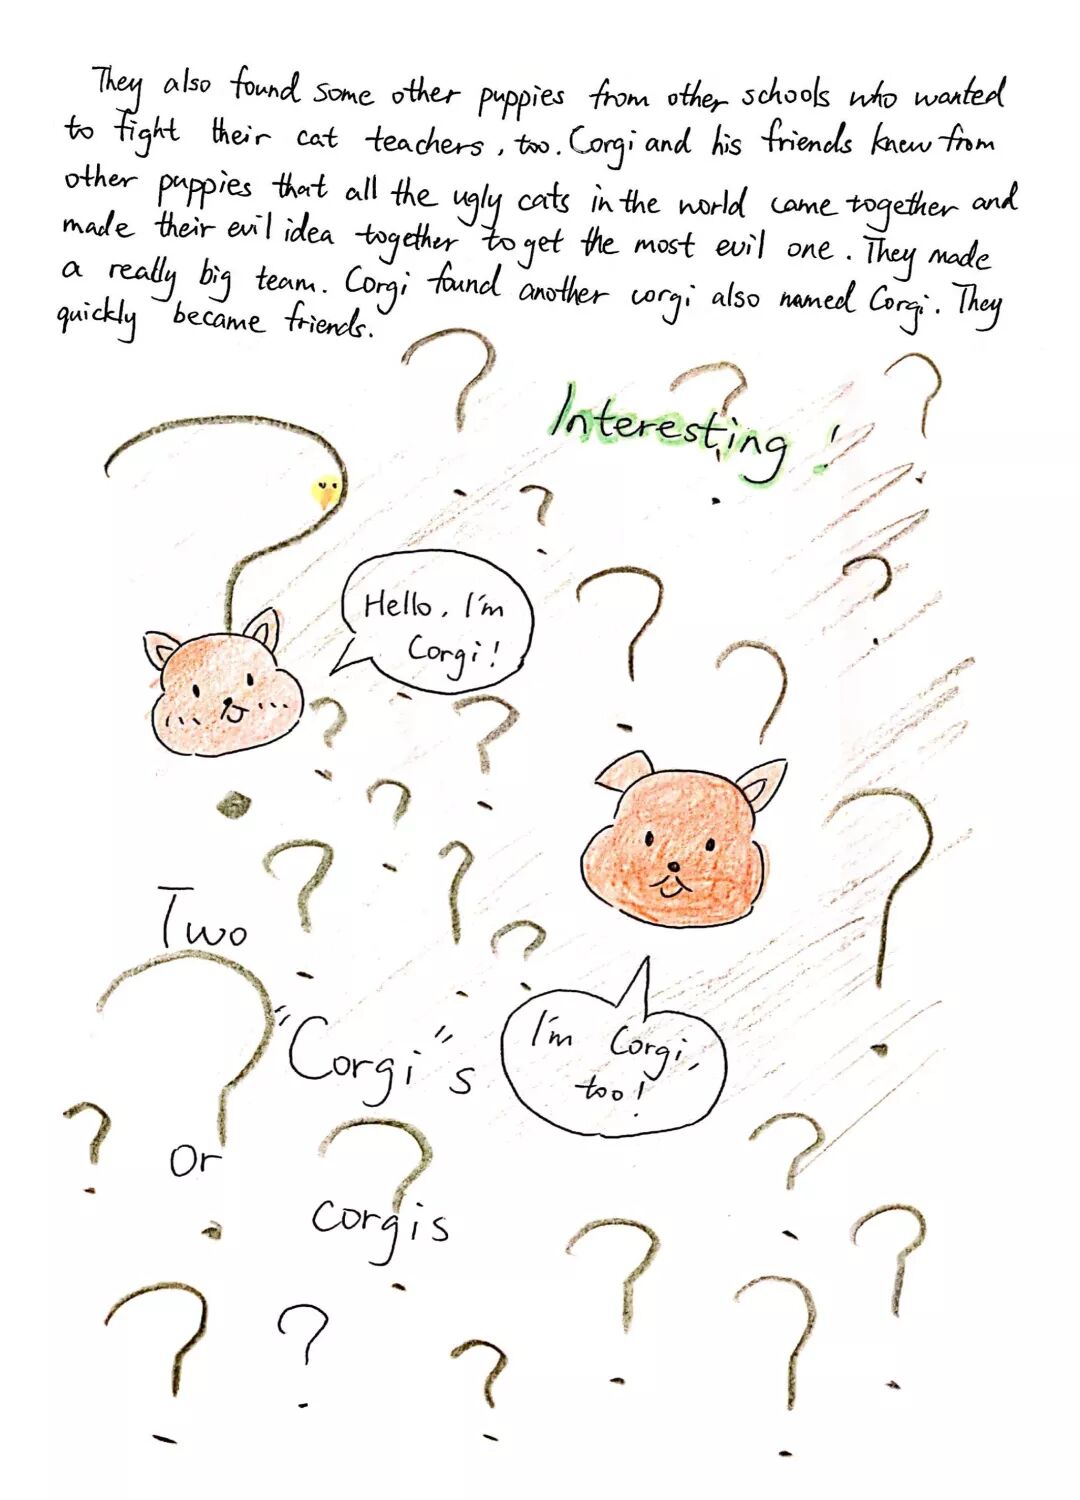 They also found some other puppies from other schools who wanted
to fight their cat teachers, too. Corgi and his friends knew from
other puppies that all the ugly cats in the world came together and
made their evil idea together to get the most evil one. They made
a really big team. Corgi found another corgi also named Corgi. They
quickly became friends.
Interesting!
Hello, I'm
Corgi!
Two
"Corgi"s
I'm Corgi,
too!
Or
corgis
?